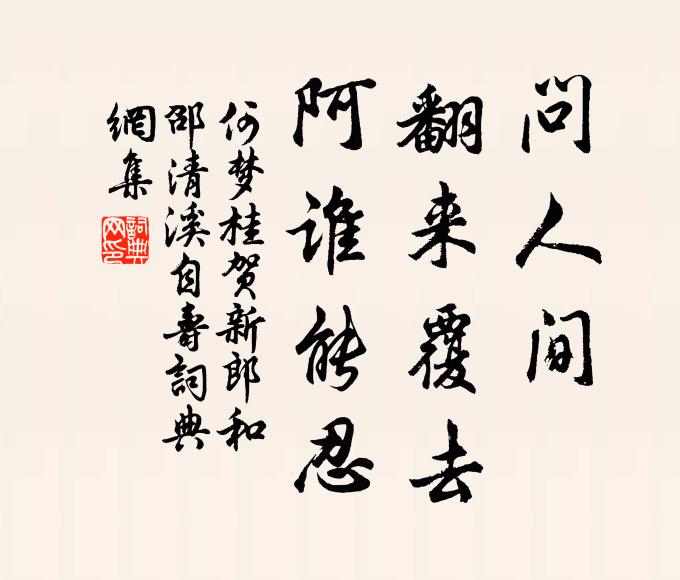 问人间
翻来覆去
阿谁能忍
何梦桂贺新郎和
邵清溪自寿词典
網集
詞典
网印